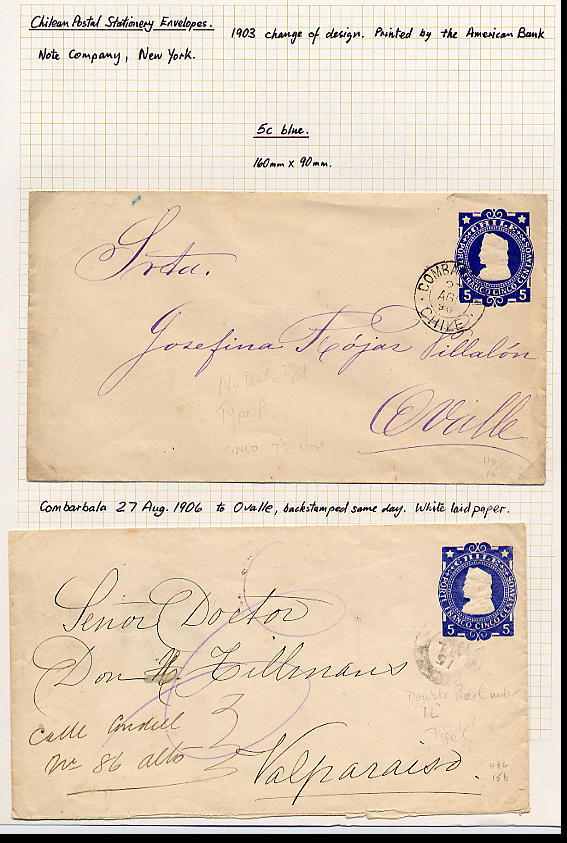 Chilean Postal Stationery Envelopes.
1903 change of design. Printed by the American Bank
Note Company, New York.
5c blue.
160mm x 90mm.
CHILE
PORTE FRANCO CINCO CENTAVOS
5 5
CHILE
Srta.
Josefina Rójas Villalón
Ovalle
Type A.
CINCO
H&G
Combarbala 27 Aug. 1906 to Ovalle, backstamped same day. White laid paper.
CHILE
PORTE FRANCO CINCO CENTAVOS
5 5
Señor Doctor
Don H Zillmans
Calle Condell
No 86 alto
Valparaiso.
Double Pearl under
H&G
15b